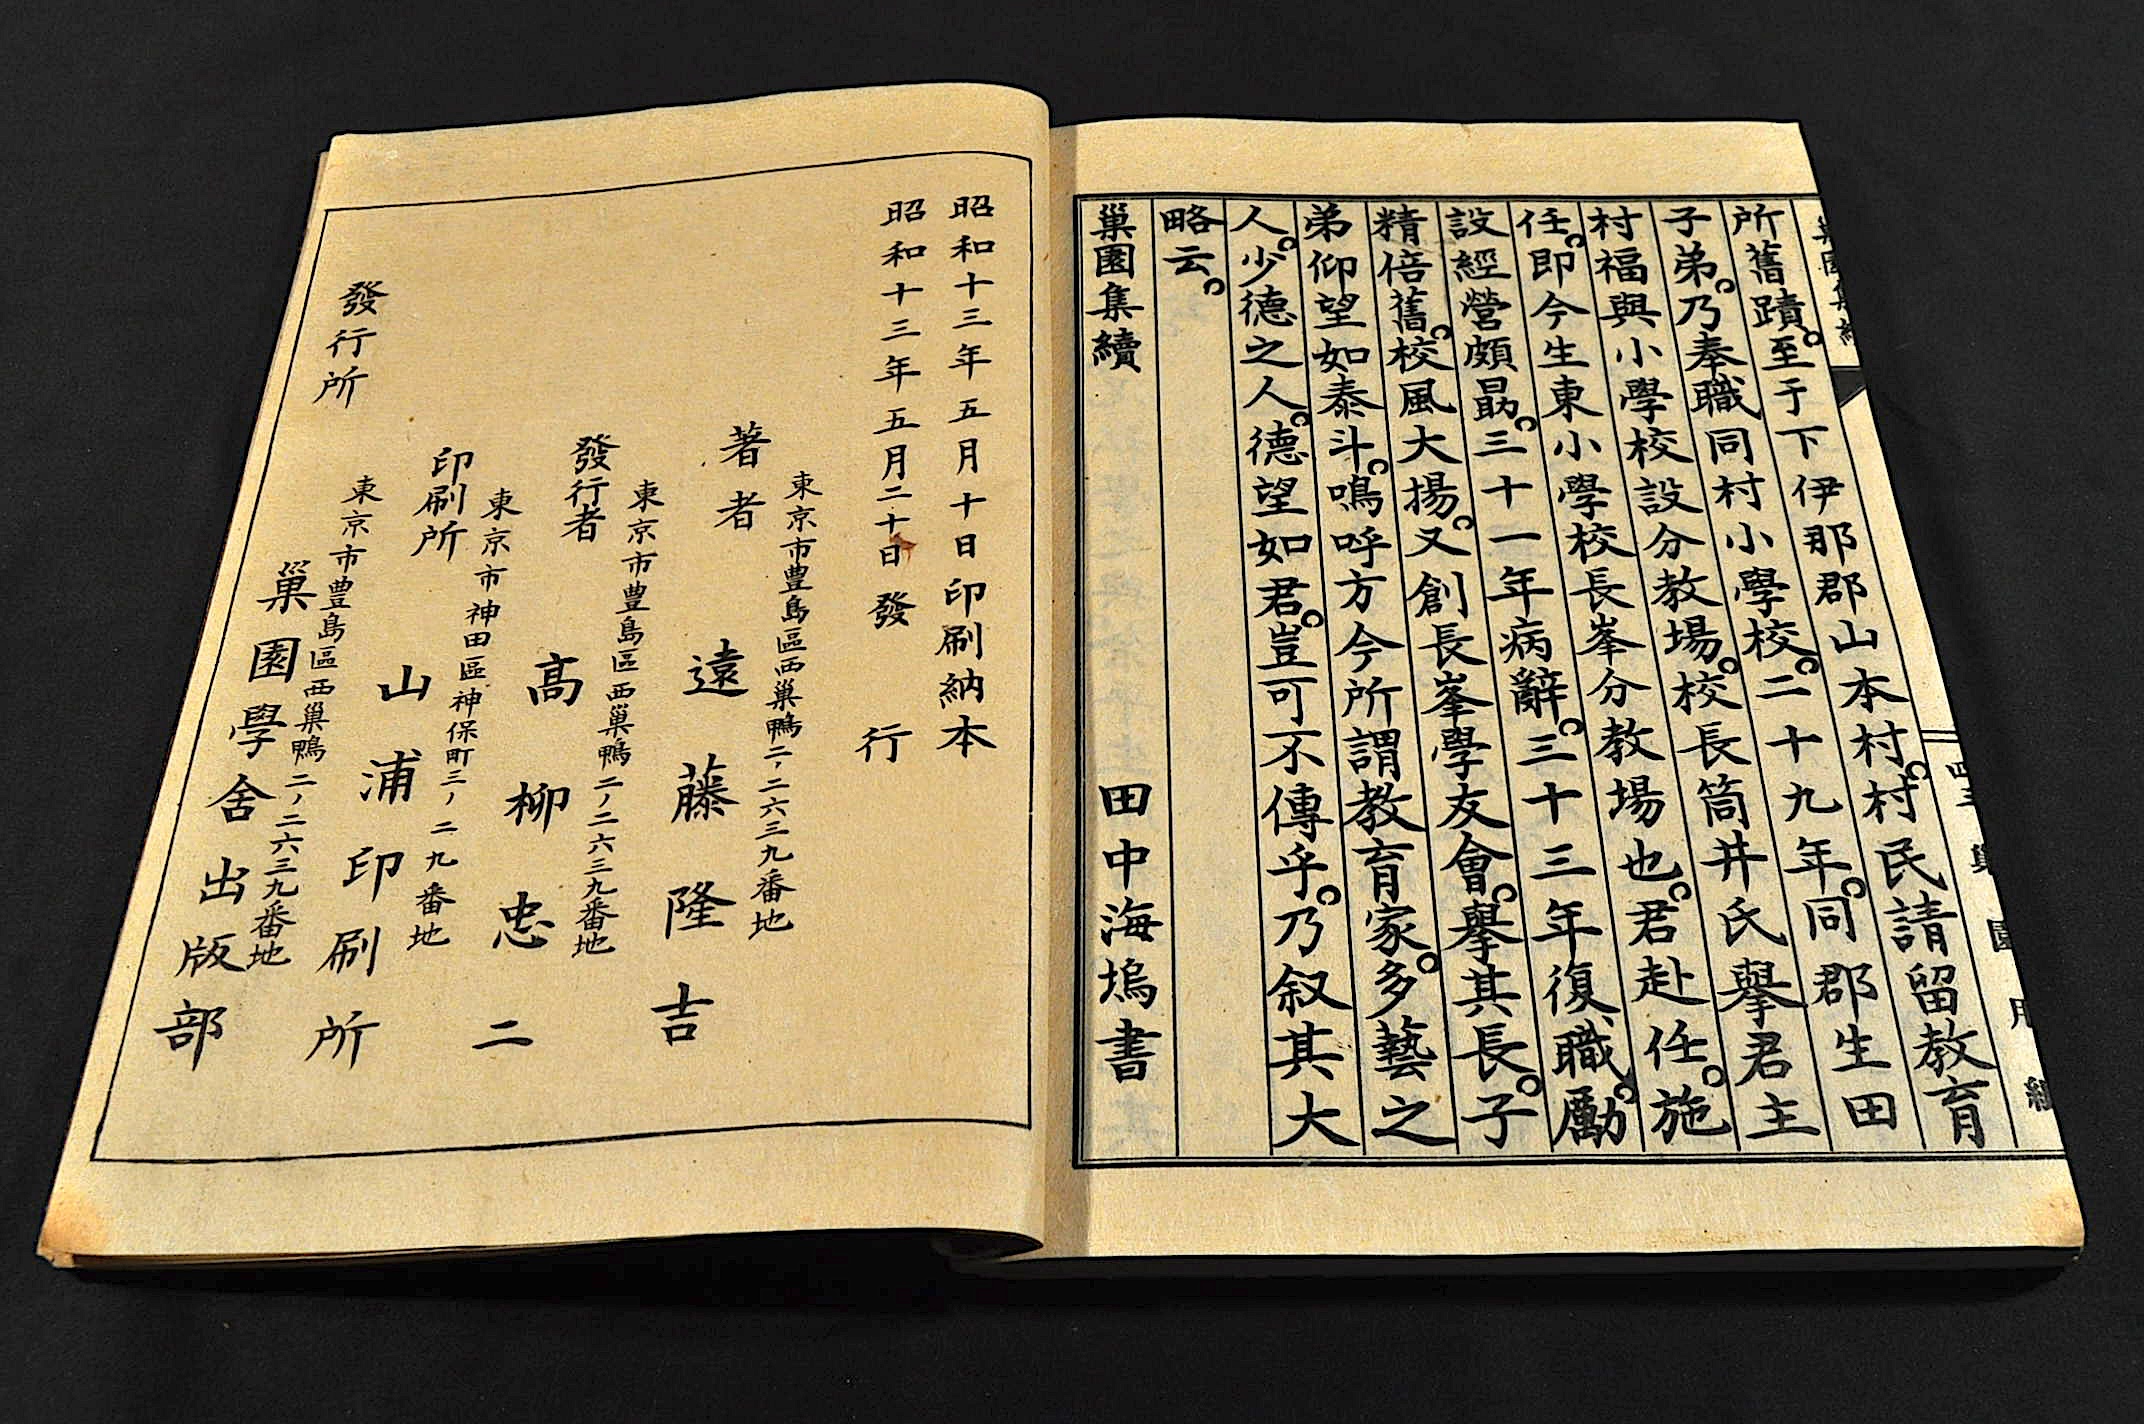 所舊蹟。至于下伊那郡山本村。村民請留教育
子弟。乃奉職同村小學校。二十九年。同郡生田
村福與小學校設分教場。校長筒井氏擧君主
任。即今生東小學校長峯分教場也。君赴任。施
設經營頗勗。三十一年病辭。三十三年復職。勵
精倍舊。校風大揚。又創長峯學友會。擧其長。子
弟仰望如泰斗。嗚呼方今所謂教育家。多藝之
人。少德之人。德望如君。豈可不傳乎。乃叙其大
略云。
巢園集續 田中海塢書
昭和十三年五月十日印刷納本
昭和十三年五月二十日發行
東京市豊島區西巢鴨二ノ二六三九番地
著者 遠藤隆吉
東京市豊島區西巢鴨二ノ二六三九番地
發行者 高柳忠二
東京市神田區神保町三ノ二九番地
印刷所 山浦印刷所
東京市豊島區西巢鴨二ノ二六三九番地
發行所 巢園學舍出版部